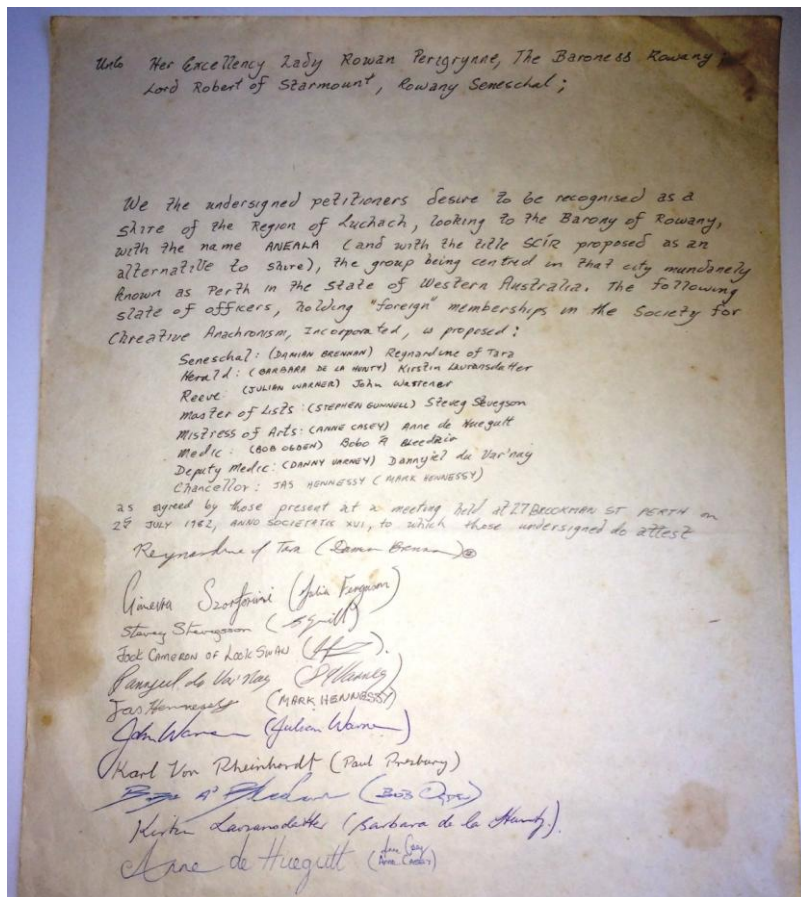 Unto Her Excellency Lady Rowan Perigrynne, The Baroness Rowany;
Lord Robert of Starmount, Rowany Seneschal;
We the undersigned petitioners desire to be recognised as a
shire of the Region of Lochach, looking to the Barony of Rowany,
with the name ANEALA (and with the title SCÍR proposed as an
alternative to shire), the group being centred in that city mundanely
known as Perth in the State of Western Australia. The following
slate of officers, holding "foreign" memberships in the Society for
Creative Anachronism, Incorporated, is proposed:
Seneschal: (DAMIAN BRENNAN) Reynardine of Tara
Herald: (BARBARA DE LA HUNTY) Kirstin Lauransdatter
Reeve: (JULIAN WARNER) John
Master of Lists: (STEPHEN GUNNELL) Steveg
Mistress of Arts: (ANNE CASEY) Anne de Huegutt
Medic: (BOB OGDEN) Bobo A'
Deputy Medic: (DANNY VARNEY) Dannyiel du Var'nay
Chancellor: JAS HENNESSY (MARK HENNESSY)
as agreed by those present at a meeting held at 27 BROOKMAN ST PERTH on
JULY 1982, ANNO SOCIETATIS XVII, to which those undersigned do attest
Reynardine of Tara (Damian Brennan)
Ginevra (Julia Ferguson)
JOCK CAMERON OF
du Var'nay
Jas Hennessy (MARK HENNESSY)
John (Julian Warner)
Karl Von Rheinhardt (Paul Presbury)
(BOB Ogden)
Kirstin Lauransdatter (Barbara de la Hunty).
Anne de Huegutt (Anne Casey
ANNE CASEY)